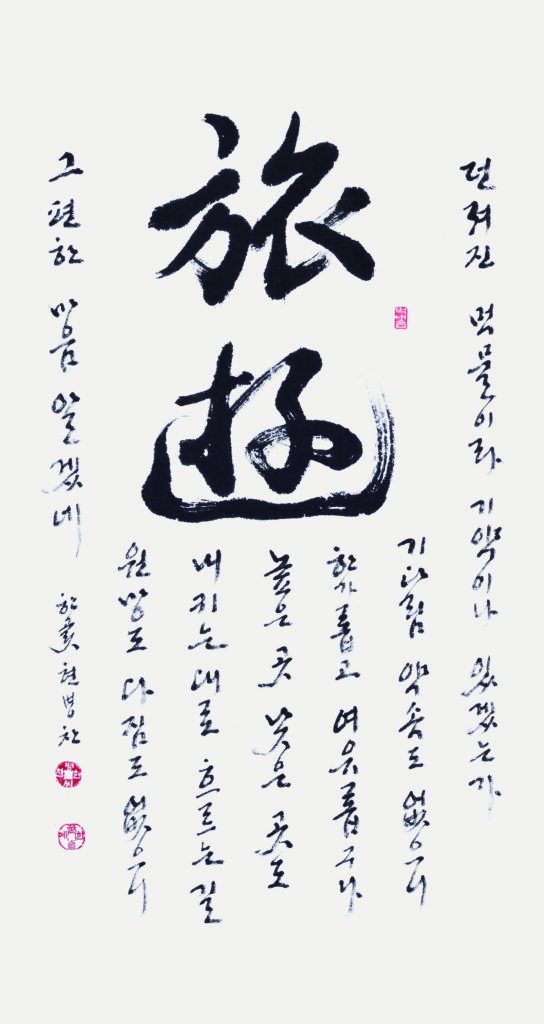 旅遊
던져진 먹물이라 기약이나 있겠는가
기다림 약속도 없으니
한가롭고 여유롭구나
높은 곳 낮은 곳도
내키는대로 흐르는 길
원망도 다짐도 없으니
그 편한 마음 알겠네
한곬 현병찬